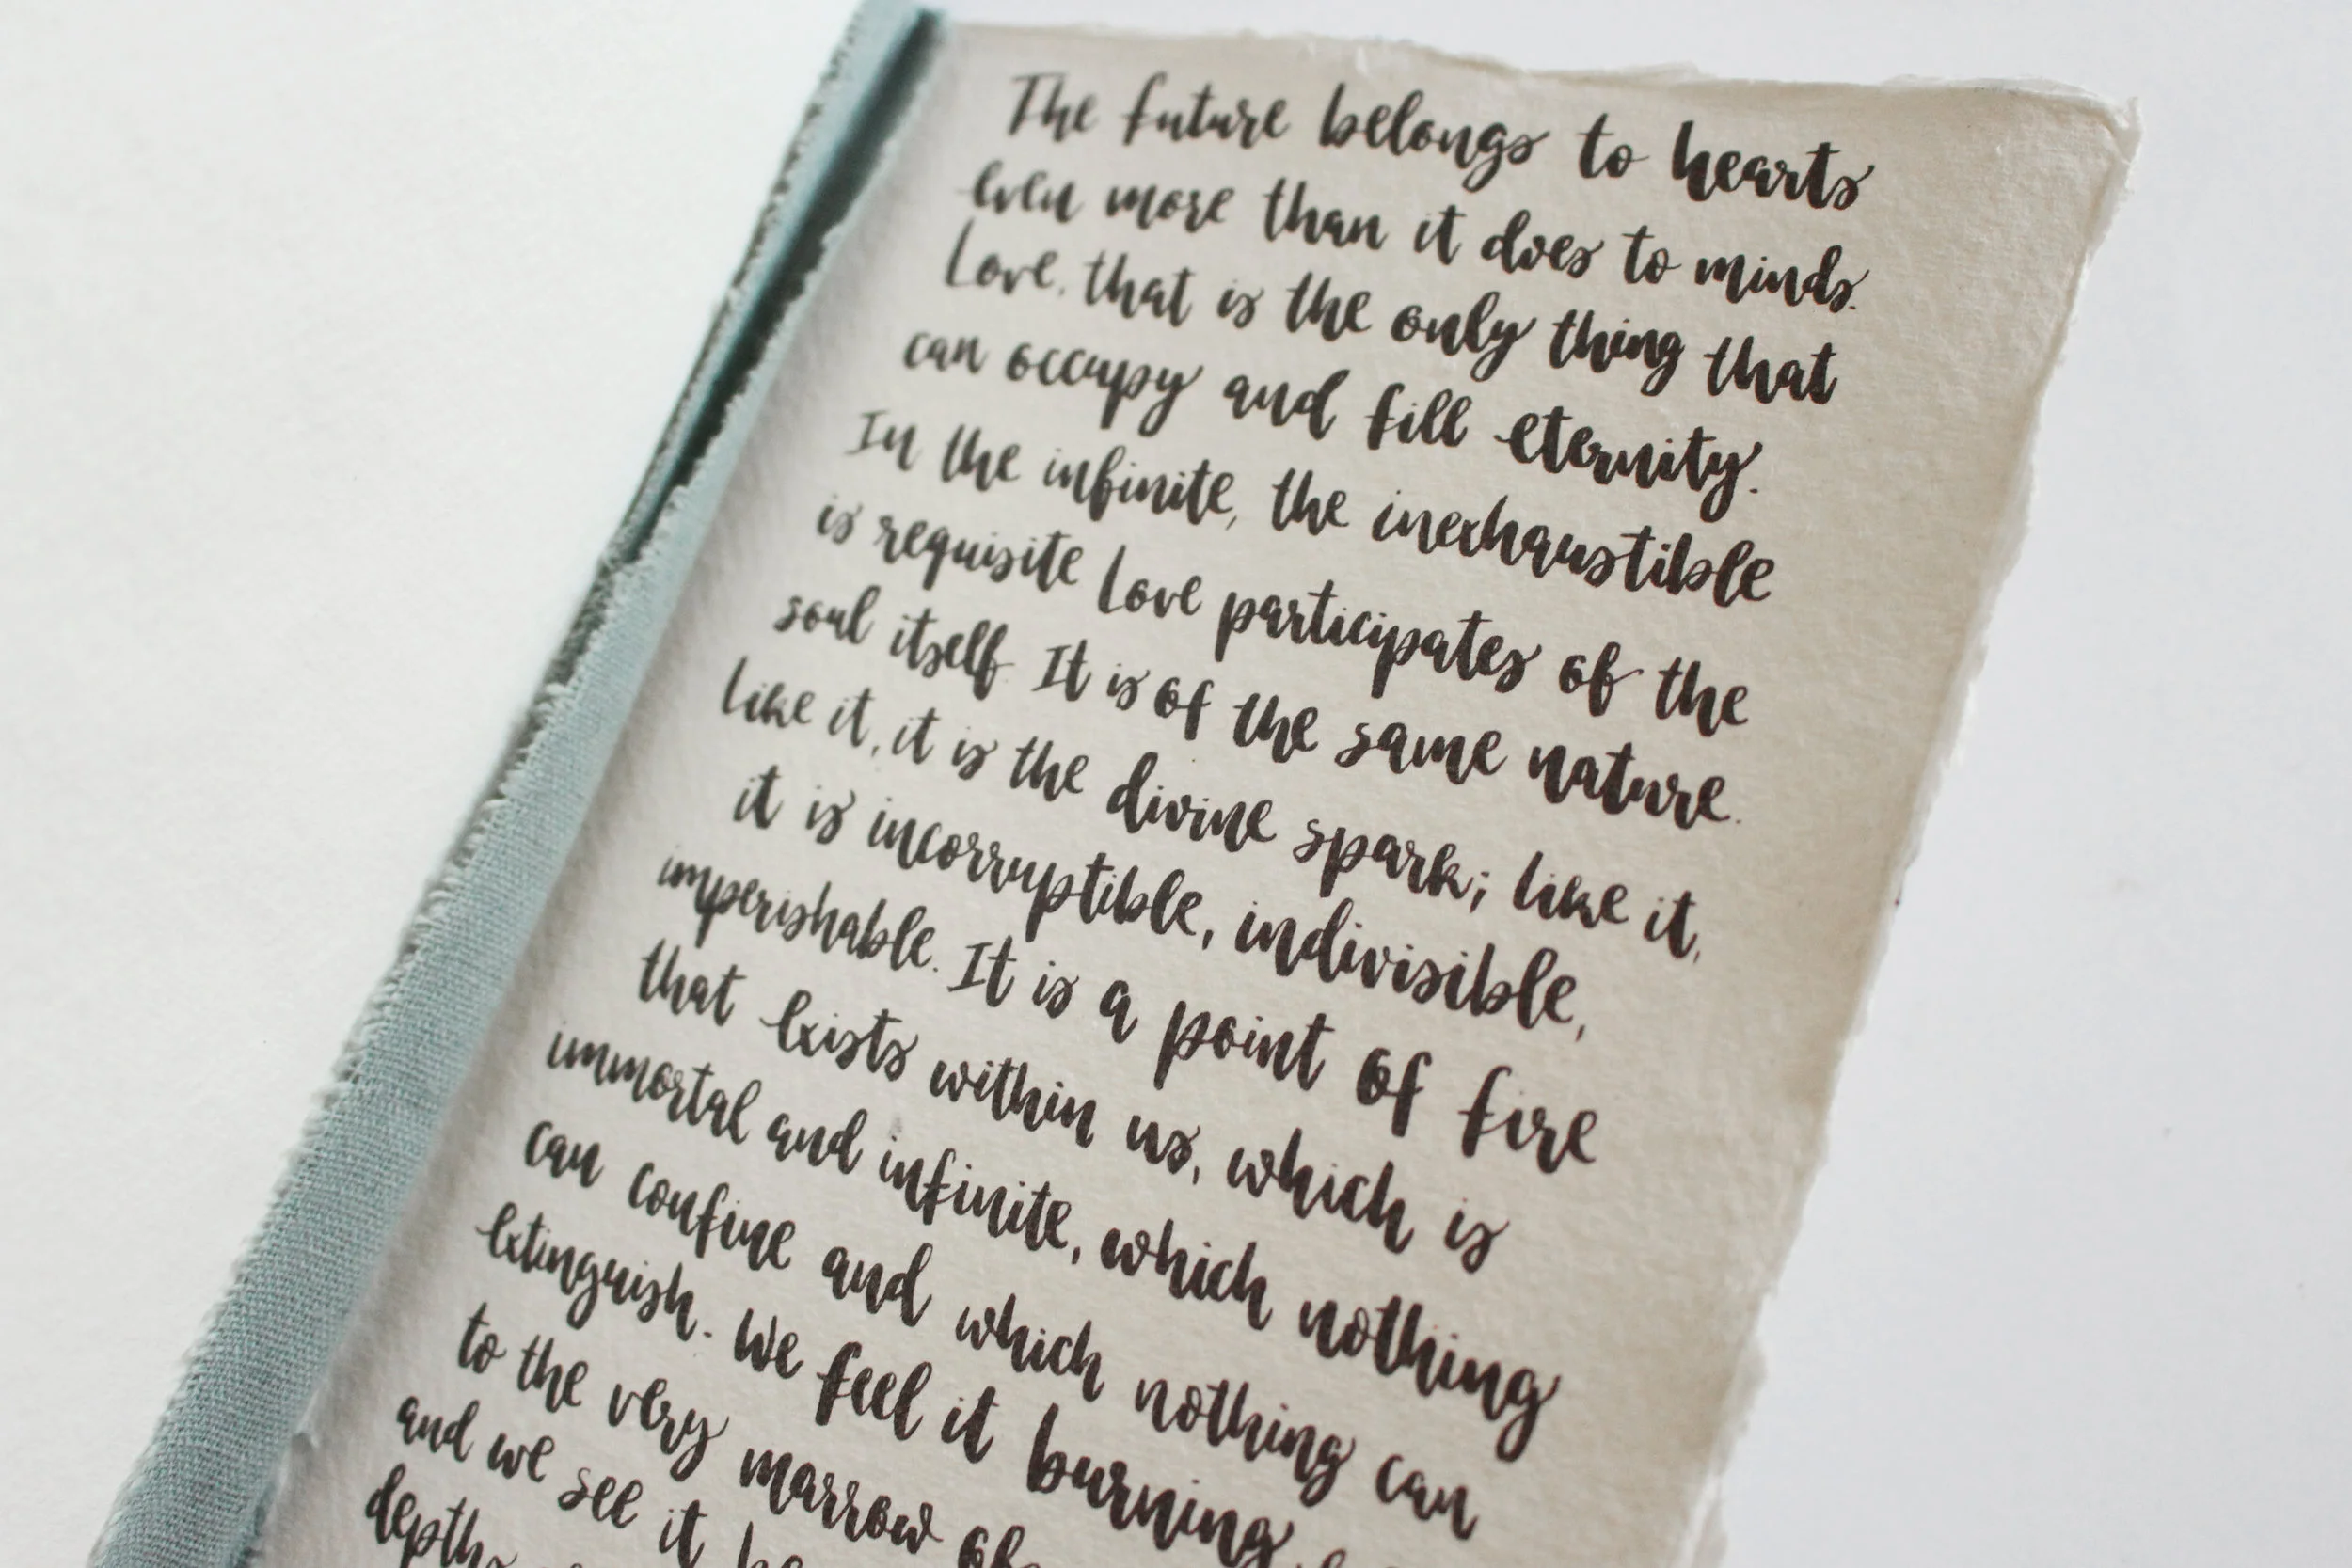 The future belongs to hearts
even more than it does to minds.
Love, that is the only thing that
can occupy and fill eternity.
In the infinite, the inexhaustible
is requisite Love participates of the
soul itself. It is of the same nature.
Like it, it is the divine spark; like it,
it is incorruptible, indivisible,
imperishable. It is a point of fire
that exists within us, which is
immortal and infinite, which nothing
can confine and which nothing can
extinguish. We feel it burning
to the very marrow of
and we see it